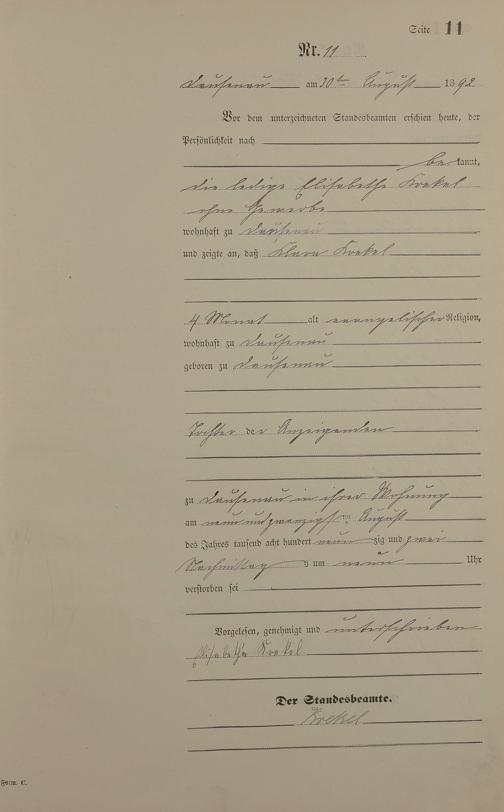 Seite 11
Nr. 11
Dausenau am 30ten August 1892
Vor dem unterzeichneten Standesbeamten erschien heute, der
Persönlichkeit nach
be kannt,
die ledige Elisabethe Krekel
ohne Gewerbe
wohnhaft zu Dausenau
und zeigte an, daß Klara Krekel
4 Monat alt evangelischer Religion,
wohnhaft zu Dausenau
geboren zu Dausenau
Tochter der Anzeigenden
zu Dausenau in ihrer Wohnung
am neun und zwanzigsten August
des Jahres tausend acht hundert neun zig und zwei
Nachmittag s um neun Uhr
verstorben sei
Vorgelesen, genehmigt und unterschrieben
Elisabethe Krekel
Der Standesbeamte.
Krekel
Form. C.